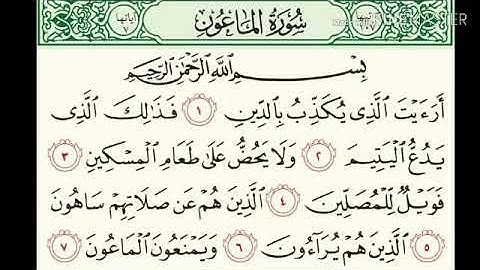 سُورَةُ المَاعُون
آياتها ٧
بِسْمِ اللَّهِ الرَّحْمَٰنِ الرَّحِيمِ
أَرَءَيْتَ الَّذِي يُكَذِّبُ بِالدِّينِ ١ فَذَٰلِكَ الَّذِي
يَدُعُّ الْيَتِيمَ ٢ وَلَا يَحُضُّ عَلَىٰ طَعَامِ الْمِسْكِينِ ٣
فَوَيْلٌ لِّلْمُصَلِّينَ ٤ الَّذِينَ هُمْ عَن صَلَاتِهِمْ سَاهُونَ
٥ الَّذِينَ هُمْ يُرَآءُونَ ٦ وَيَمْنَعُونَ الْمَاعُونَ ٧